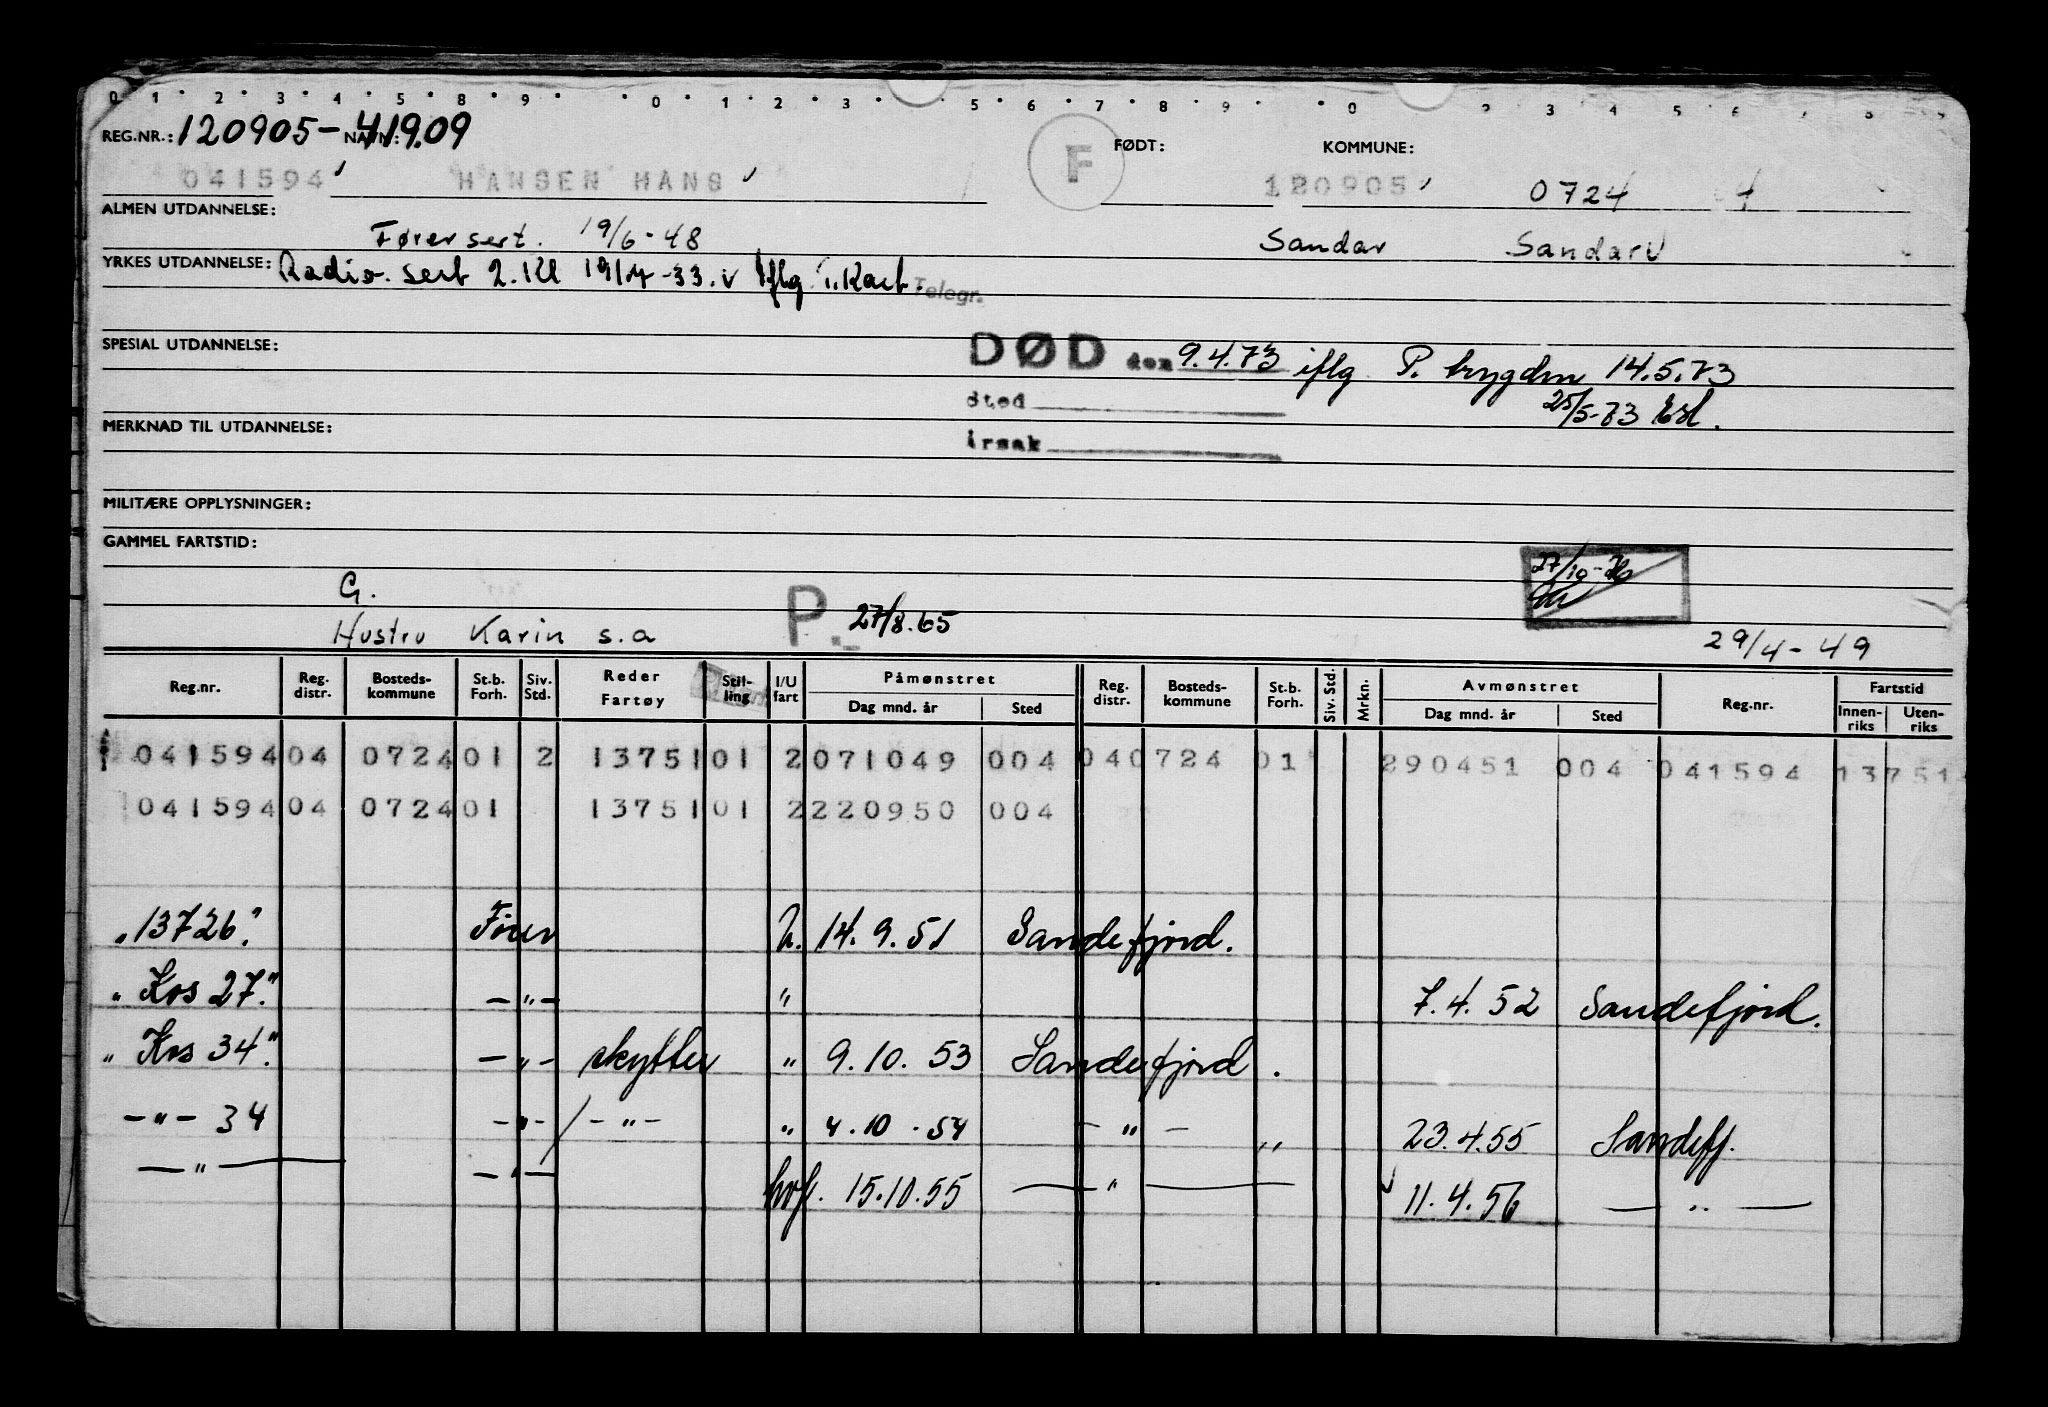 0 1 2 3 4 5 8 9 0 1 2 3 5 6 7 8 9 0 2 3 4 5 6 7 8
REG.NR.: 120905-41909 NAVN: FØDT: KOMMUNE:
041594 HANSEN HANS F 120905 0724
ALMEN UTDANNELSE:
Førersert. 19/6-48 Sandar Sandar
YRKES UTDANNELSE: Radio. sert 2. Kl 19/4-33. v Iflg. Kart. Telegr.
SPESIAL UTDANNELSE: DØD den 9.4.73 iflg P. trygden 14.5.73
sted 25/5-73
MERKNAD TIL UTDANNELSE: årsak
MILITÆRE OPPLYSNINGER:
GAMMEL FARTSTID:
G. 27/10-
Hustru Karin s.a P. 27/8.65 29/4-49
Reg.nr. Reg. distr. Bosteds-kommune St.b. Forh. Siv. Std. Reder Fartøy Stil-ling I/U fart Påmønstret Dag mnd. år Sted Reg. distr. Bosteds-kommune St.b. Forh. Siv. Std. Mrkn. Avmønstret Dag mnd. år Sted Reg.nr. Fartstid Innen-riks Uten-riks
041594 04 0724 01 2 13751 01 2 071049 004 04 0724 01 290451 004 041594 13751
041594 04 0724 01 13751 01 2 220950 004
"13726" Fører U. 14.9.51 Sandefjord.
"Kos 27." -"- " 7.4.52 Sandefjord.
"Kos 34." -"- skytter " 9.10.53 Sandefjord.
-"- 34 -"- / -"- " 4.10.54 -"- " 23.4.55 Sandefj.
-"- -"- hvf. 15.10.55 -"- 11.4.56 -"-